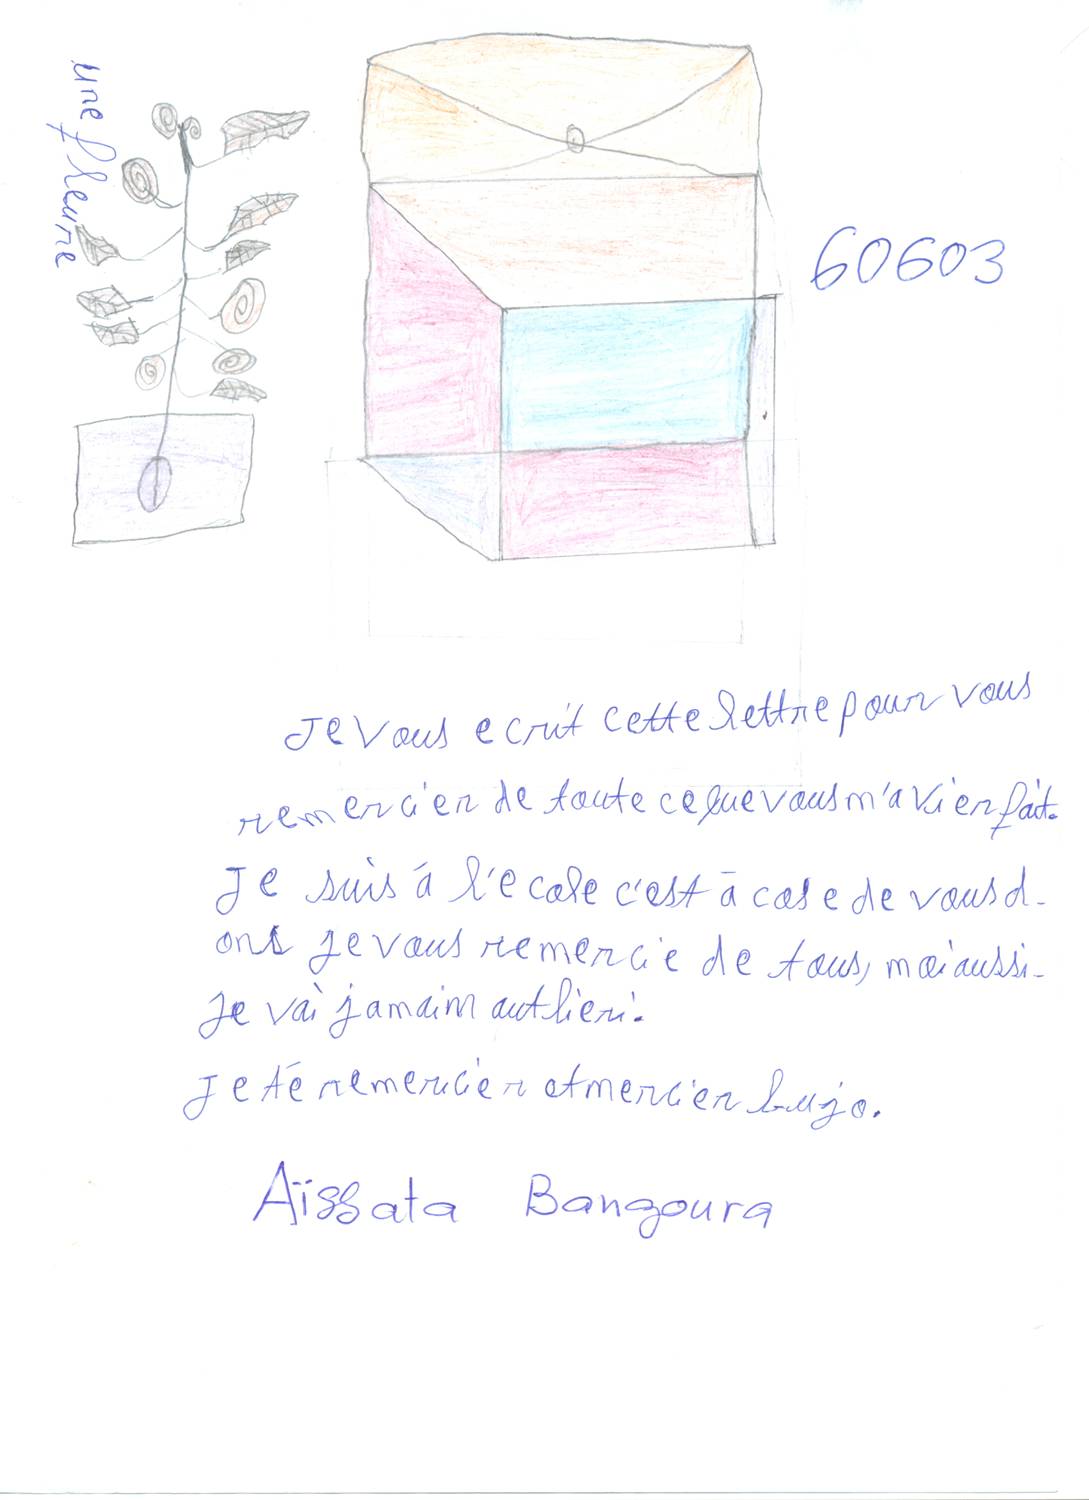 une fleure
60603
Je vous ecrit cette lettre pour vous
remercier de toute ce que vous m'a vi en fait.
Je suis à l'ecole c'est à cose de vous d-
onc je vous remercie de tous, moi aussi-
Je vai jamain aublieri.
Je té remercier et mercier bujo.
Aïssata Bangoura